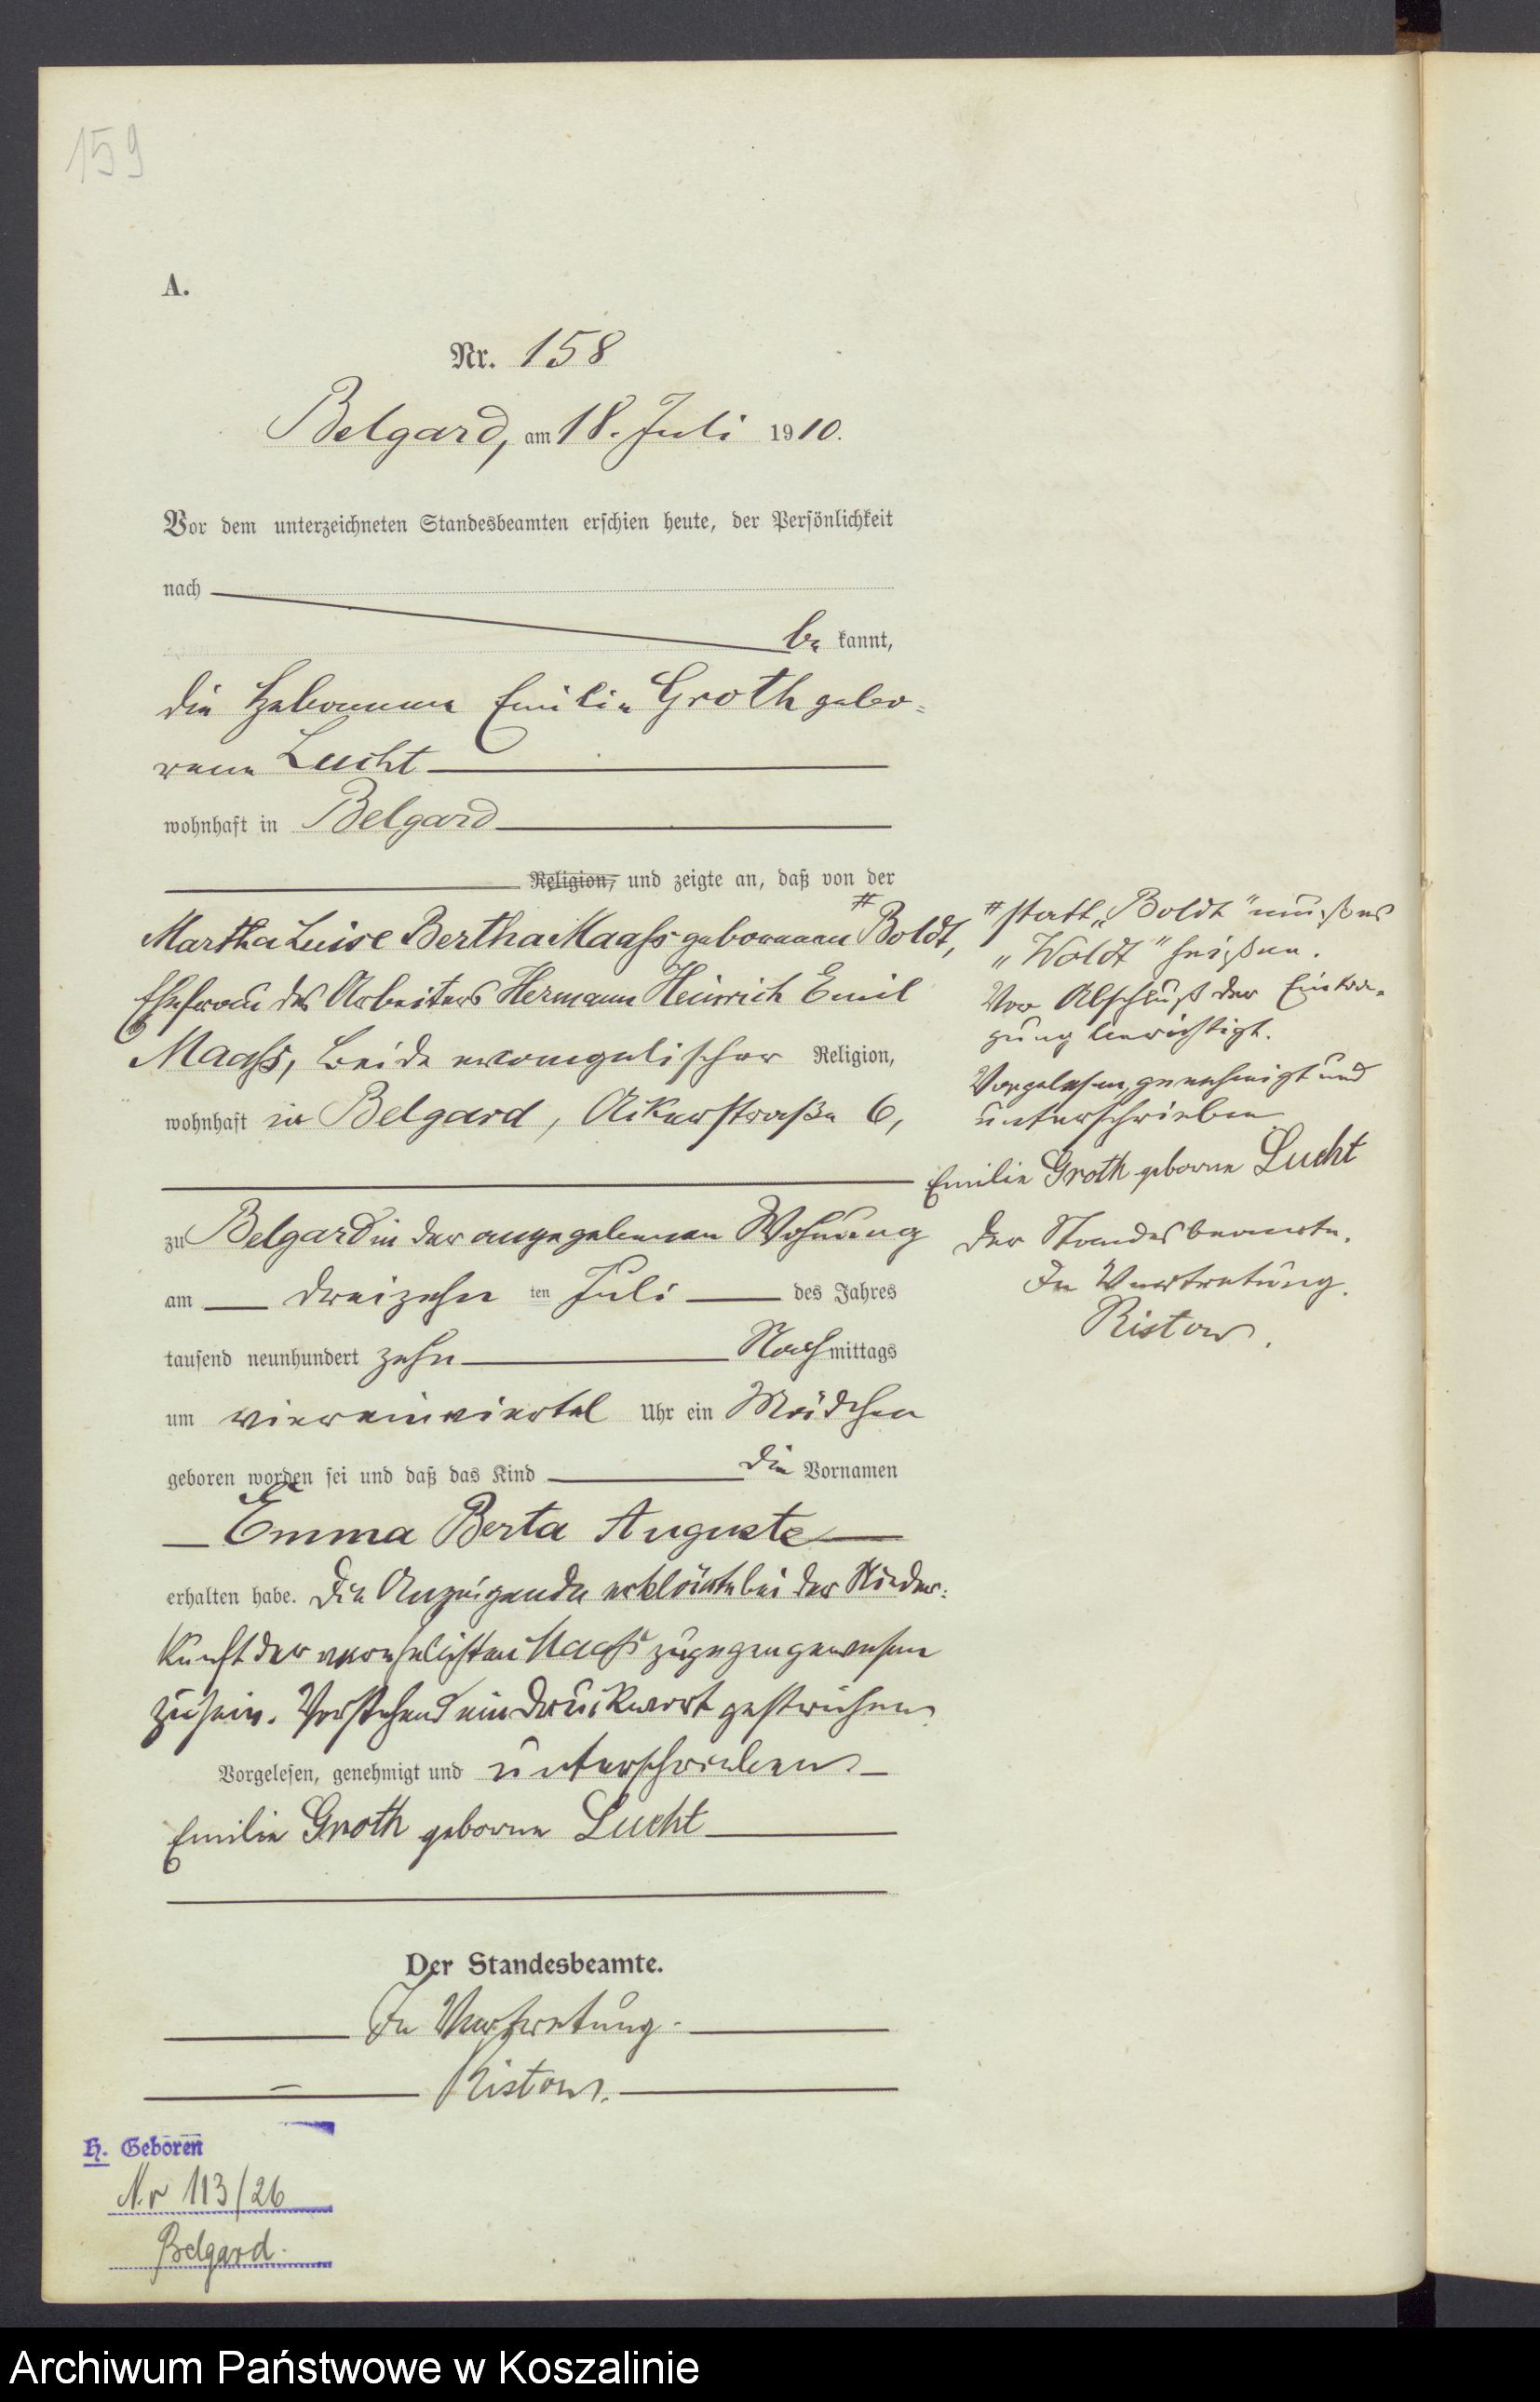 159
A.
Nr. 158
Belgard, am 18. Juli 1910.
Vor dem unterzeichneten Standesbeamten erschien heute, der Persönlichkeit
nach
be kannt,
die Hebamme Emilie Groth gebo-
rene Lucht
wohnhaft in Belgard
Religion, und zeigte an, daß von der
Martha Luise Bertha Maaß geborenen # Boldt,
Ehefrau des Arbeiters Hermann Heinrich Emil
Maaß, beide evangelischer Religion,
wohnhaft in Belgard, Ackerstraße 6,
zu Belgard in der angegebenen Wohnung
am dreizehn ten Juli des Jahres
tausend neunhundert zehn Nachmittags
um viereinviertel Uhr ein Mädchen
geboren worden sei und daß das Kind die Vornamen
Emma Berta Auguste
erhalten habe. Die Anzeigende erklärte bei der Nieder-
kunft der verehelichten Maaß zugegen gewesen
zu sein. Vorstehend ein Druckwort gestrichen.
Vorgelesen, genehmigt und unterschrieben
Emilie Groth geborne Lucht
Der Standesbeamte.
In Vertretung.
Ristow.
# statt „Boldt" muß es
„Woldt" heißen.
Vor Abschluß der Eintra-
gung berichtigt.
Vorgelesen, genehmigt und
unterschrieben
Emilie Groth geborne Lucht
Der Standesbeamte.
In Vertretung.
Ristow.
H. Geboren
Nr 113/26
Belgard.
Archiwum Państwowe w Koszalinie